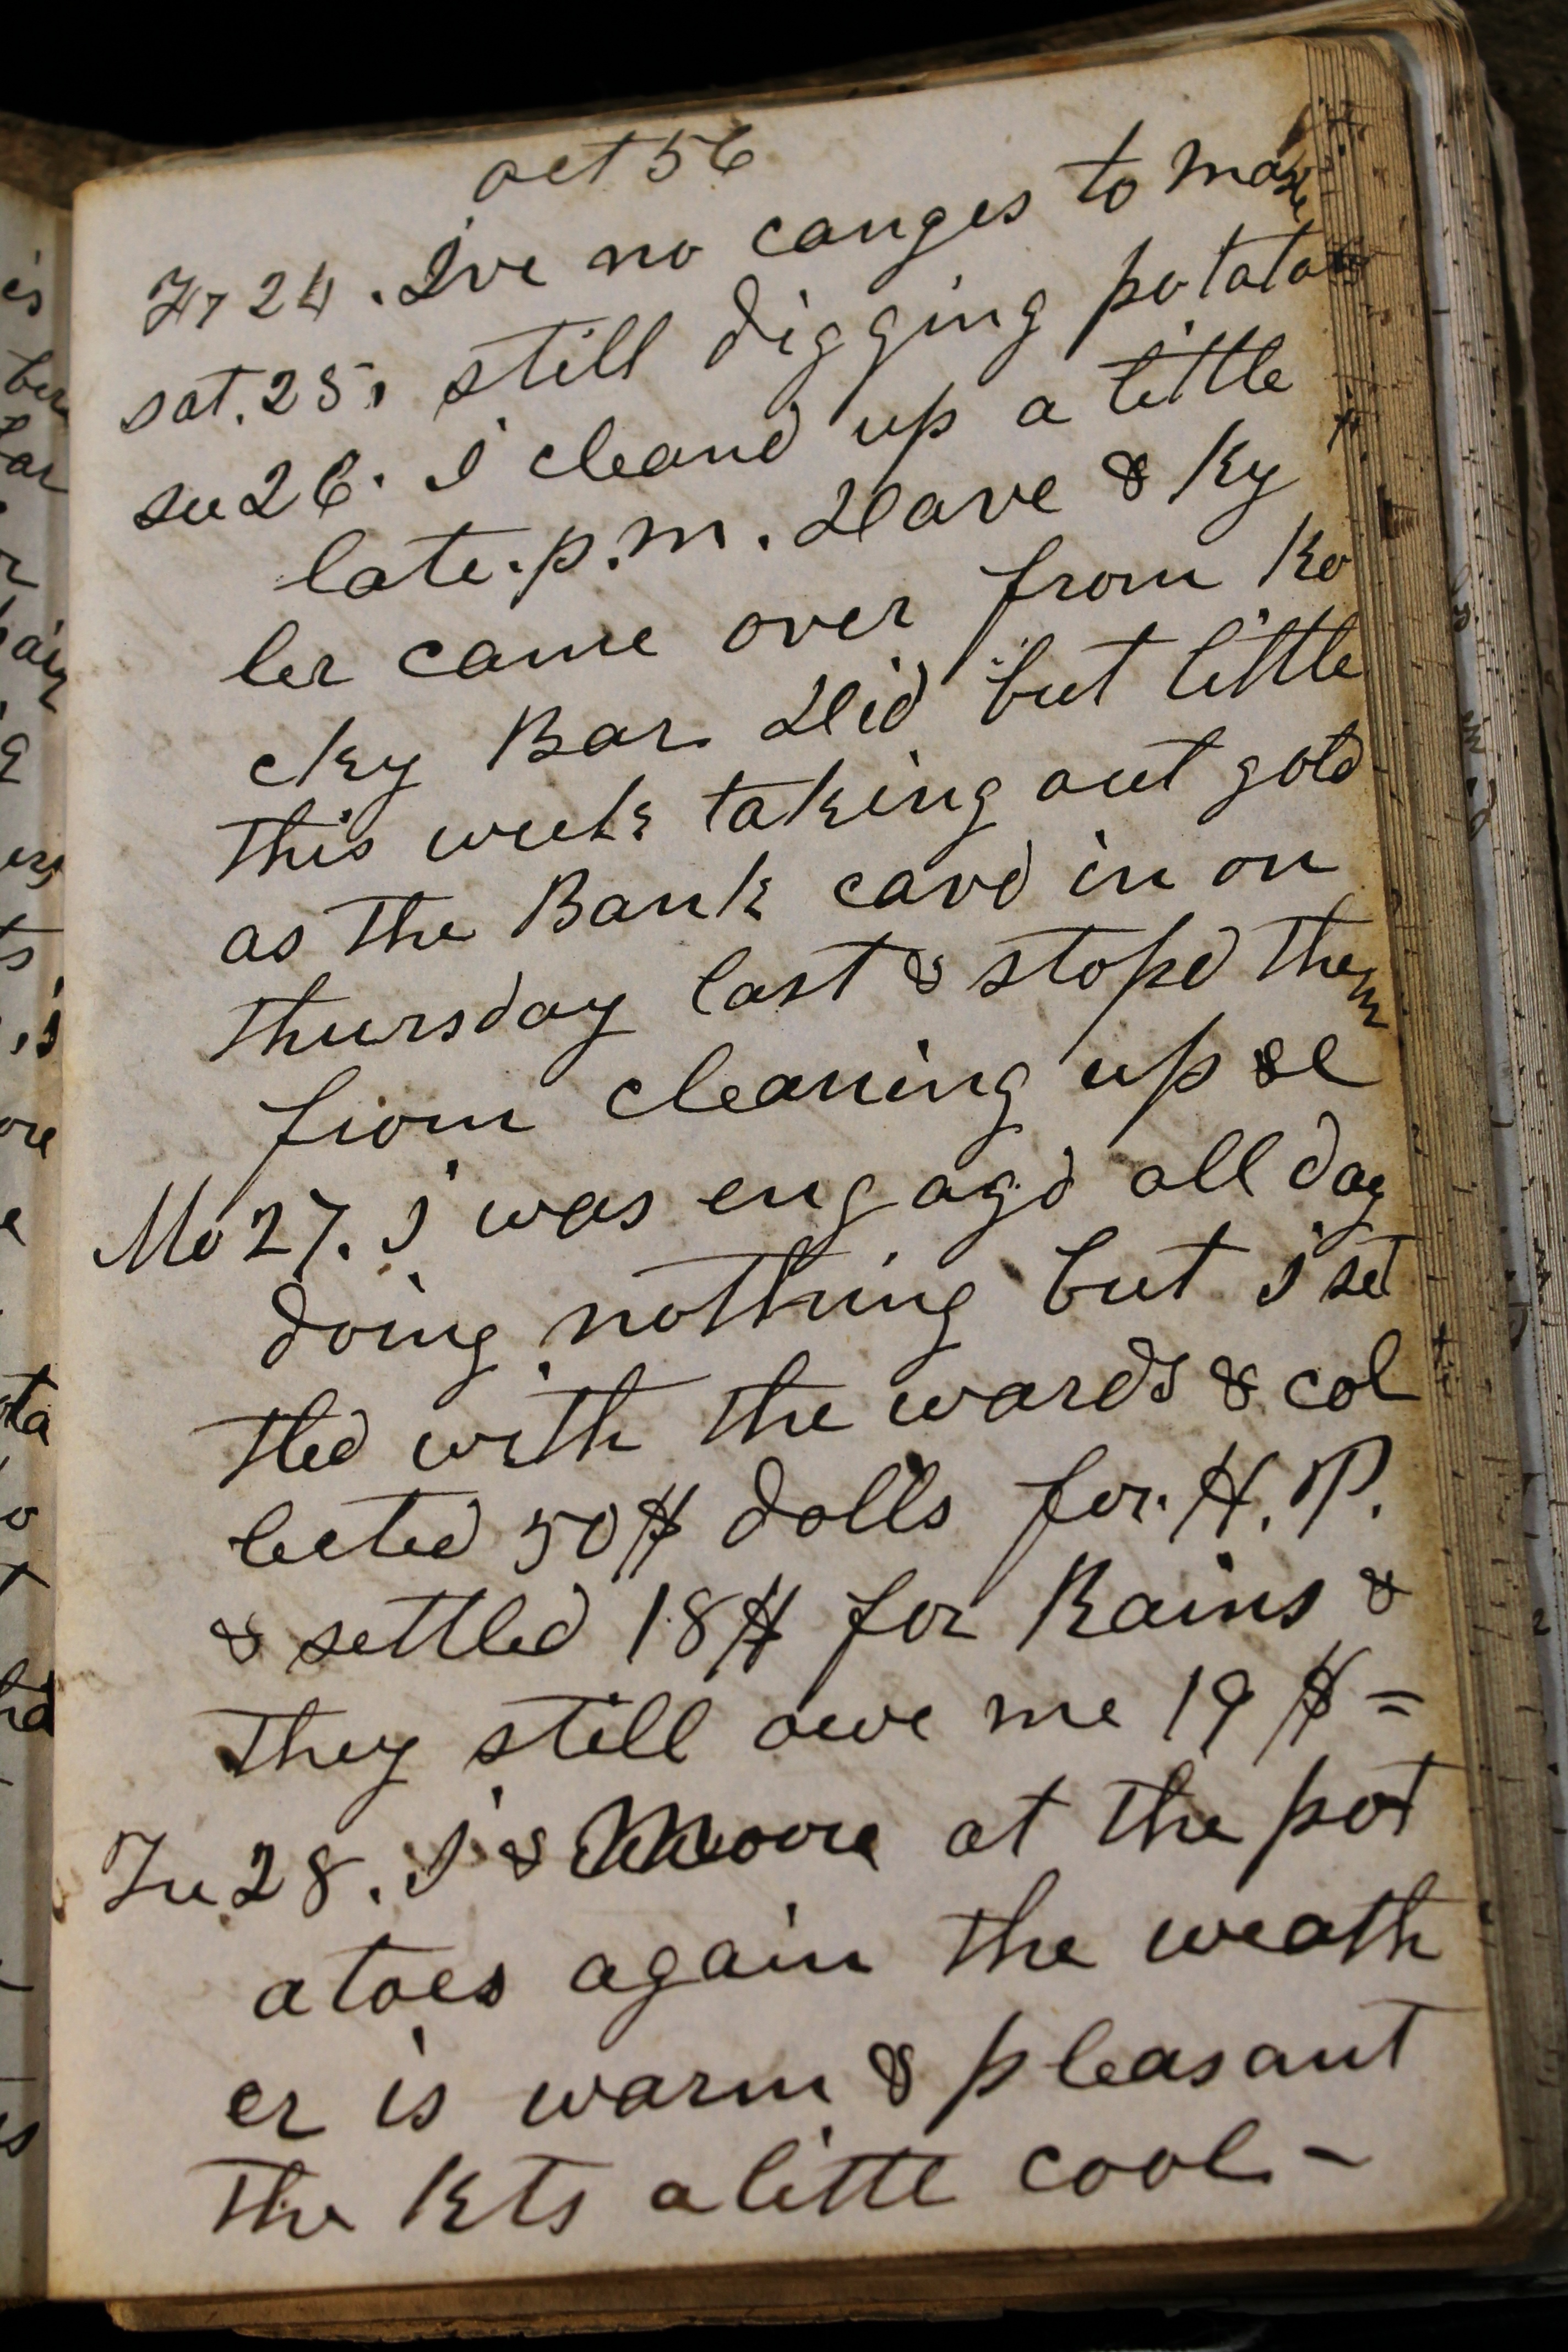 oct 56
Fr 24. Ive no canges to make
sat. 25. still digging potatoes
su 26. I cleand up a little
late. p. m. Dave & Ky
ler came over from Ro
cky Bar. Did but little
this week taking out gold
as the Bank cavd in on
thursday last & stopd them
from cleaning up &c
Mo 27. I was engagd all day
doing nothing but I set
tled with the wards & col
lected 50$ dolls for H. P.
& settled 18$ for Rains &
they still owe me 19 $ =
Tu 28. I & Moore at the pot
atoes again the weath
er is warm & pleasant
the Nts a littl cool -